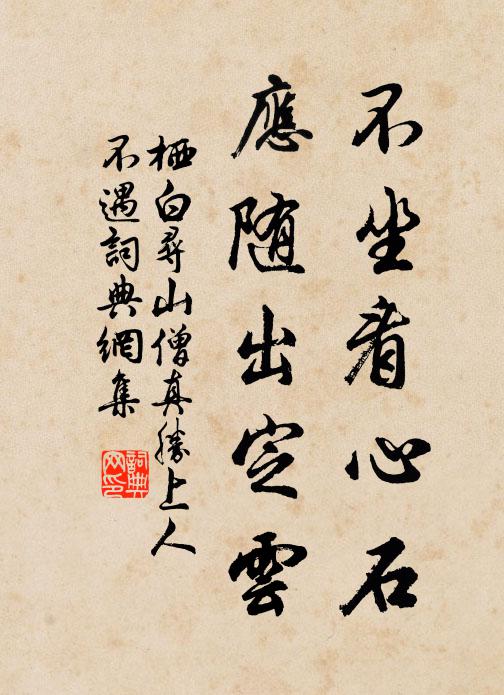 不坐看心石
應随出定雲
栖白尋山僧真勝上人
不遇詞典網集
詞典
网印